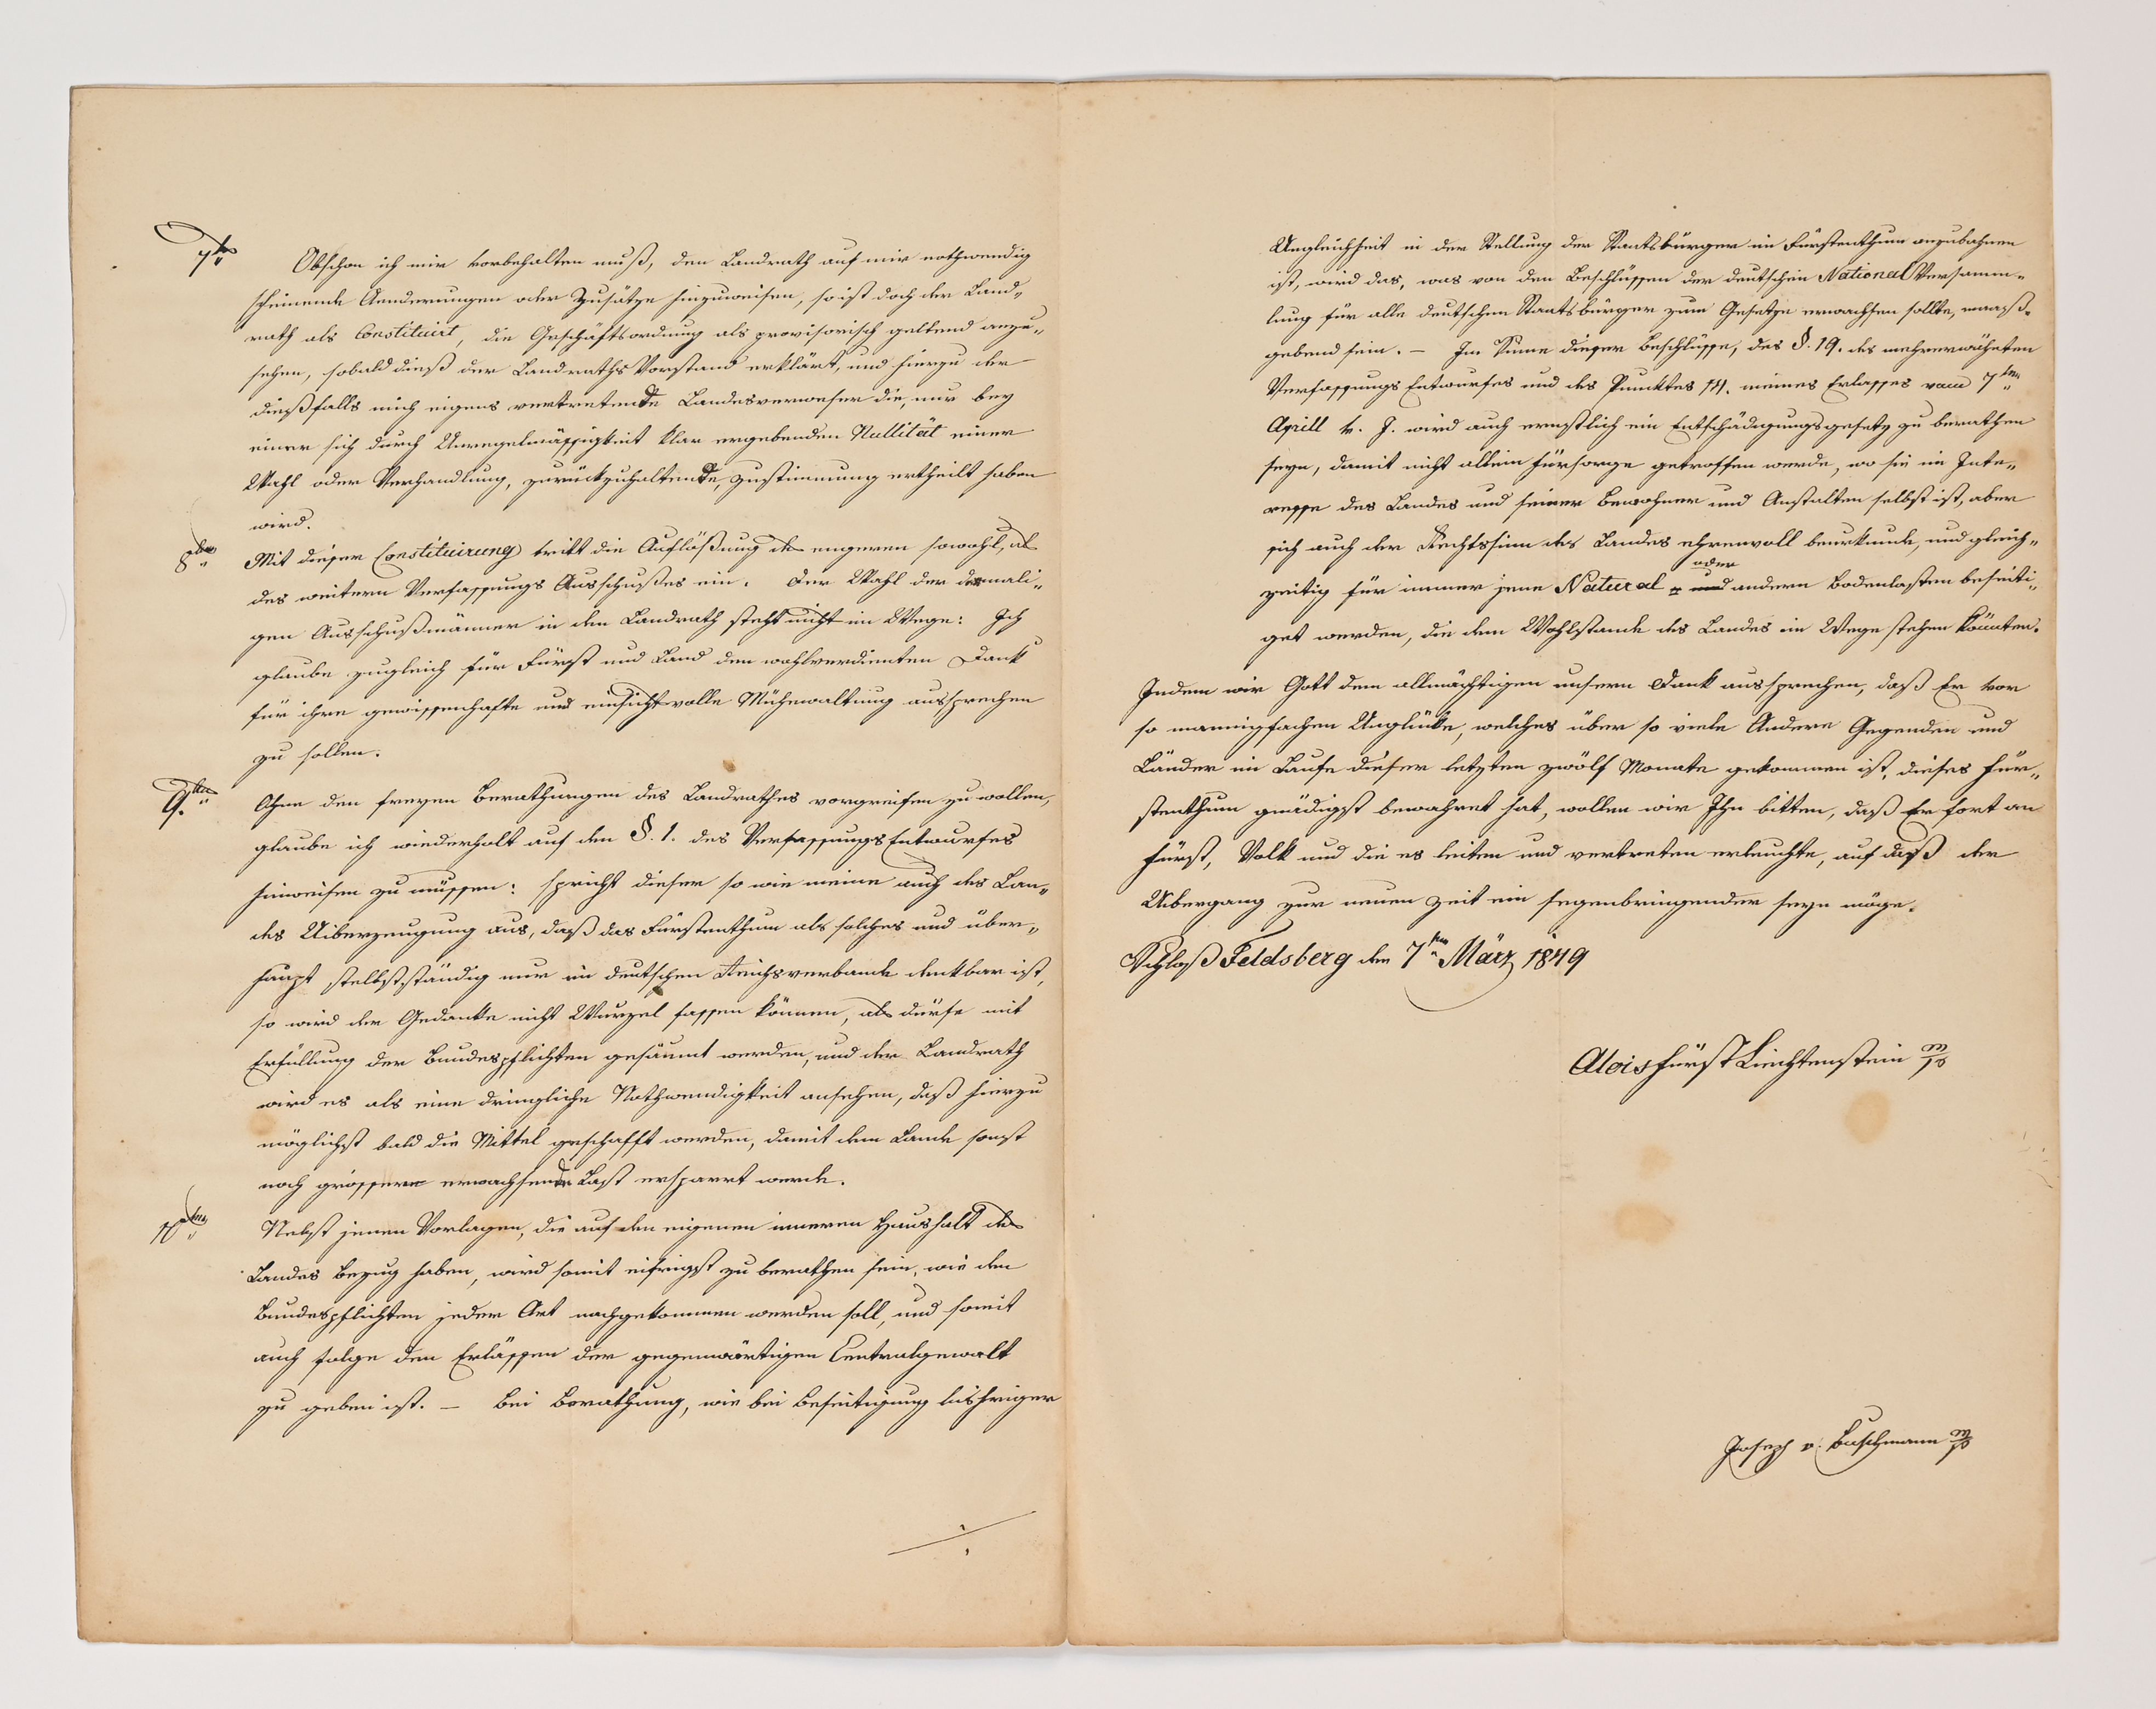 7tens Obschon ich mir vorbehalten muß, den Landrath auf mir nothwendig
scheinende Aenderungen oder Zusätze hinzuweisen, so ist doch der Land„
rath als Constituirt, die Geschäftsordnung als provisorisch geltend anzu„
sehen, sobald dieß der Landraths Vorstand erklärt, und hierzu der
dießfalls mich eigens vertretende Landesverweser die, nur bey
einer sich durch Unregelmässigkeit klar ergebenden Nullität einer
Wahl oder Verhandlung, zurückzuhaltende, Zustimmung ertheilt haben
wird.
8tens Mit dieser Constituirung tritt die Auflößung des engeren sowohl, als
des weitern Verfassungs Ausschußes ein. Der Wahl der dermali„
gen Ausschußmänner in den Landrath steht nicht im Wege: Ich
glaube zugleich für Fürst und Land den wohlverdienten Dank
für ihre gewissenhafte und einsichtsvolle Mühewaltung aussprechen
zu sollen.
9tens Ohne den freyen Berathungen des Landrathes vorgreifen zu wollen,
glaube ich wiederholt auf den §. 1. des Verfassungs Entwurfes
hinweisen zu müssen: spricht dieser so wie meine auch des Lan„
des Uiberzeugung aus, daß das Fürstenthum als solches und über„
haupt selbstständig nur im deutschen Reichsverbande denkbar ist,
so wird der Gedanke nicht Wurzel fassen können, als dürfe mit
Erfüllung der Bundespflichten gesäumt werden, und der Landrath
wird es als eine dringliche Nothwendigkeit ansehen, daß hierzu
möglichst bald die Mittel geschafft werden, damit dem Lande sonst
noch grössere erwachsende Last erspart werde.
10tens Nebst jenen Vorlagen, die auf den eigenen inneren Haushalt des
Landes Bezug haben, wird somit eifrigst zu berathen sein, wie den
Bundespflichten jeder Art nachgekommen werden soll, und somit
auch folge den Erlässen der gegenwärtigen Centralgewalt
zu geben ist. — Bei Berathung, wie bei Beseitigung bisheriger
Ungleichheit in der Stellung der Staatsbürger im Fürstenthum anzubahnen
ist, wird das, was von den Beschlüssen der deutschen National Versamm„
lung für alle deutschen Staatsbürger zum Gesetze erwachsen sollte, maaß„
gebend sein. — Im Sinne dieser Beschlüsse, des §. 19. des mehrerwähnten
Verfassungs Entwurfes und des Punktes 14. meines Erlasses vom 7ten
Aprill v. J. wird auch ernstlich ein Entschädigungsgesetz zu berathen
seyn, damit nicht allein Fürsorge getroffen werde, wo sie im Inte„
resse des Landes und seiner Bewohner und Anstalten selbst ist, aber
sich auch der Rechtssinn des Landes ehrenvoll beurkunde, und gleich„
zeitig für immer jene Natural = und oder andern Bodenlasten beseiti„
get werden, die dem Wohlstande des Landes im Wege stehen könnten.
Indem wir Gott dem allmächtigen unsern Dank aussprechen, daß Er vor
so mannigfachen Unglücke, welches über so viele Andere Gegenden und
Länder im Laufe dieser letzten zwölf Monate gekommen ist, dieses Für„
stenthum gnädigst bewahret hat, wollen wir Ihn bitten, daß Er fort an
Fürst, Volk und die es leiten und vertreten erleuchte, auf daß der
Uibergang zur neuen Zeit ein segenbringender seyn möge.
Schloß Feldsberg den 7ten März 1849
Alois Fürst Liechtenstein m/p
Joseph v. Buschmann m/p